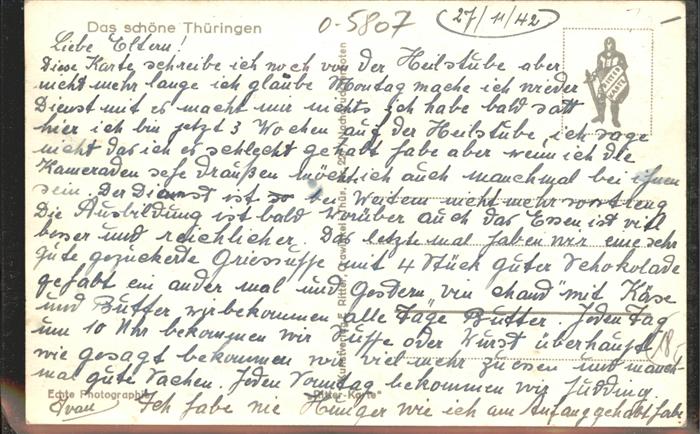 Das schöne Thüringen
0-5807
27/11/42
Liebe Eltern!
Diese Karte schreibe ich noch von der Heilstube aber
nicht mehr lange ich glaube Montag mache ich wieder
Dienst mit es macht mir nichts ich habe bald satt
hier ich bin jetzt 3 Wochen auf der Heilstube, ich sage
nicht das ich es schlecht gehabt habe aber wenn ich die
Kameraden sehe draußen möcht ich auch manchmal bei ihnen
sein. Der Dienst ist so bei Weitem nicht mehr so streng
Die Ausbildung ist bald vorüber auch das Essen ist viel
besser und reichlicher. Das letzte mal haben wir eine sehr
gute gezuckerde Griessuppe mit 4 Stück guter Schokolade
gehabt ein ander mal und Gestern "vin chaud" mit Käse
und Butter wir bekommen alle Tage Butter Jeden Tag
um 10 Uhr bekommen wir Suppe oder Wurst überhaupt
wie gesagt bekommen wir viel mehr zu essen und manch-
mal gute Sachen. Jeden Sonntag bekommen wir Pudding.
Ich habe nie Hunger wie ich am Anfang gehabt habe
18,-
Echte Photographie
"Ritter-Karte"
RITTER KARTE